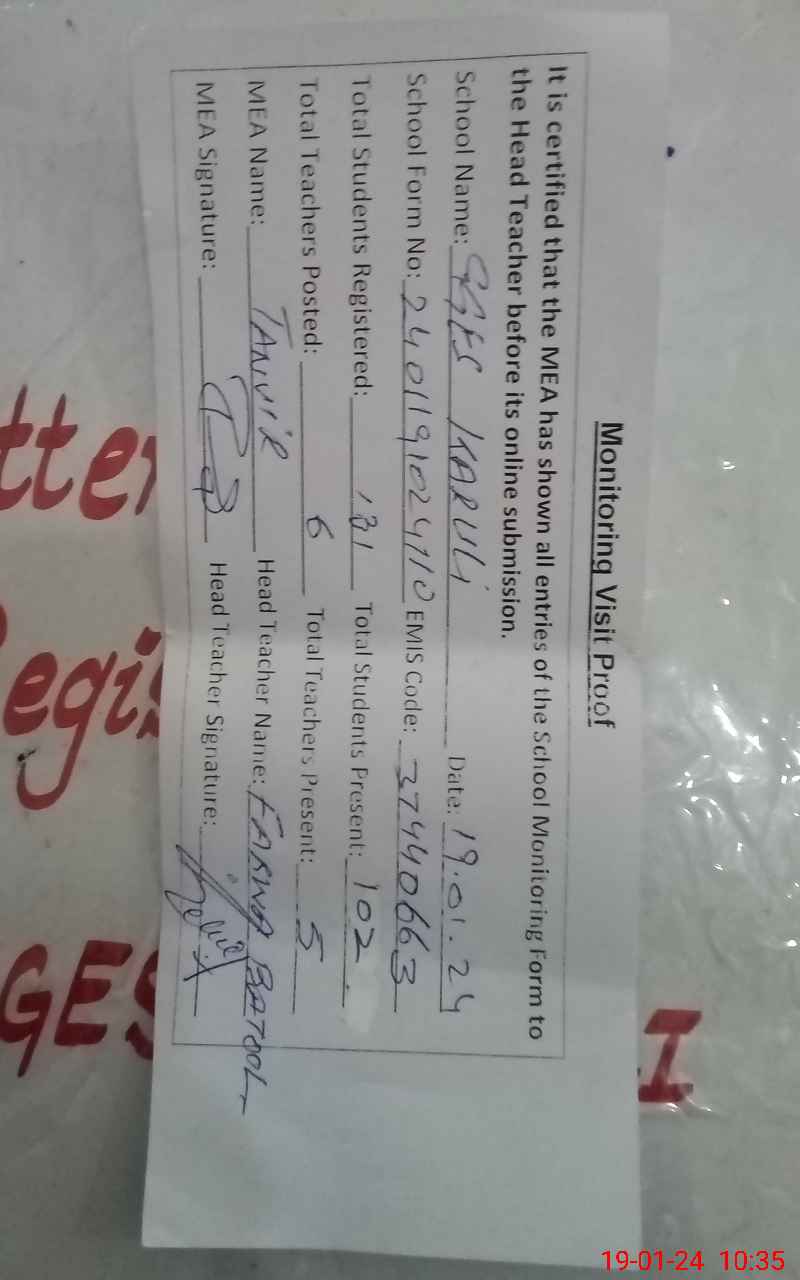 Monitoring Visit Proof
It is certified that the MEA has shown all entries of the School Monitoring Form to
the Head Teacher before its online submission.
School Name: GGES KARULI Date: 19.01.24
School Form No: 2401191024110 EMIS Code: 37440663
Total Students Registered: 131 Total Students Present: 102
Total Teachers Posted: 6 Total Teachers Present: 5
MEA Name: TANVIR Head Teacher Name: FARWA BATOOL
MEA Signature: Head Teacher Signature:
tter
egis
GES
I
19-01-24 10:35